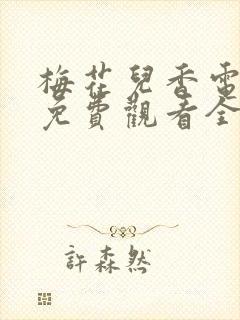 梅花兒香電
免費觀看全
許森然